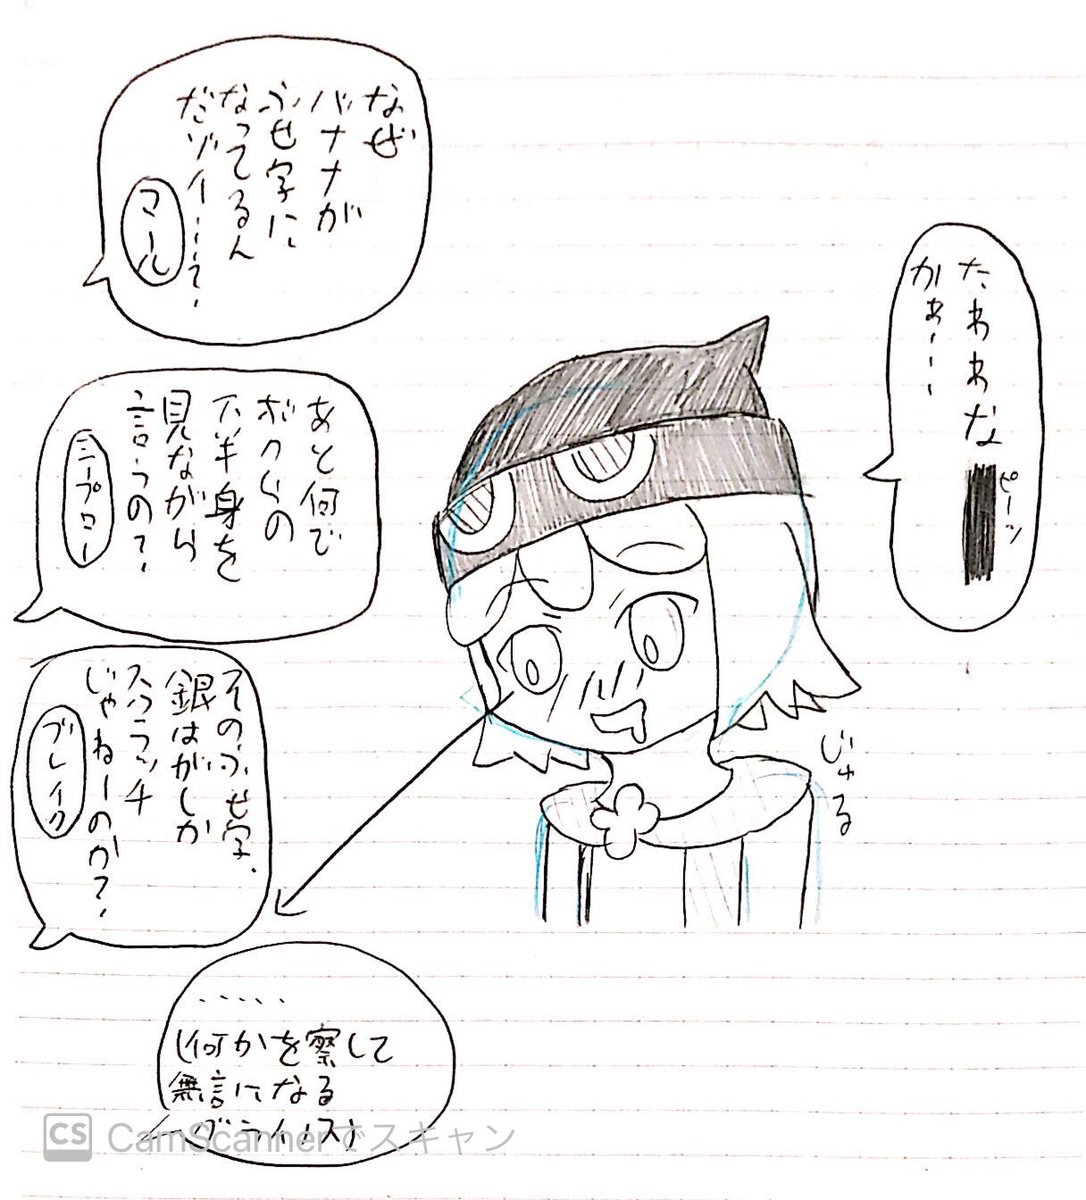 たわわな
ピーッ
かぁーーー
なぜ
バナナが
ふせ字に
なってるん
だゾイ……?
マール
あと何で
ボクらの
下半身を
見ながら
言うの?
ニープロー
そのふせ字、
銀はがしか
スクラッチ
じゃねーのか?
ブレイク
じゅる
・・・・・
(何かを察して
無言になる
CS CamScannerでスキャン